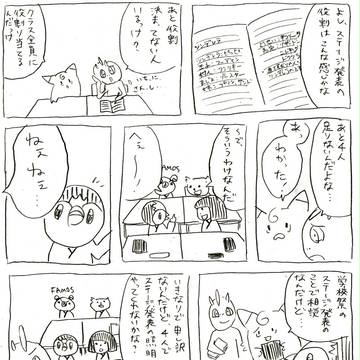 よし、ステージ発表の
役割はこんな感じかな
シンデレラ
あと役割
決まってない人
いるっけ？
いち、に、
さん、し…
クラス全員に
役割り当てる
んだっけ
あと4人
足りないんだよな…
あっ
わかった！
～で、
そういうわけなんだ
へぇー！
FAMOS
ねぇねぇ…
学校祭の
ステージ発表の
ことで相談
なんだけど…
いきなりで申し訳
ないんだけど、4人で
ステージ発表の照明
やってくれないかな？
FAMOS